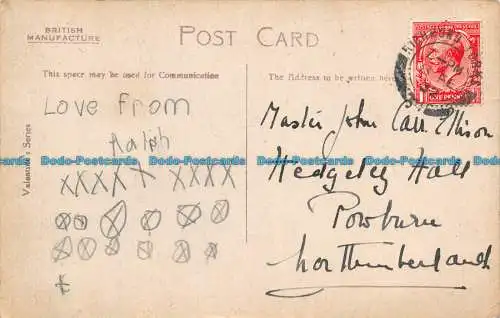 BRITISH
MANUFACTURE
POST CARD
This space may be used for Communication
The Address to be written here
Love from
Ralph
XXXXX XXXX
Valesque Series
Master John Carr Ellison
Hedgeley Hall
Powburn
Northumberland
ONE PENNY
Dodo-Postcards Dodo-Postcards Dodo-Postcards Dodo-Postcards
Dodo-Postcards Dodo-Postcards Dodo-Postcards Dodo-Postcards